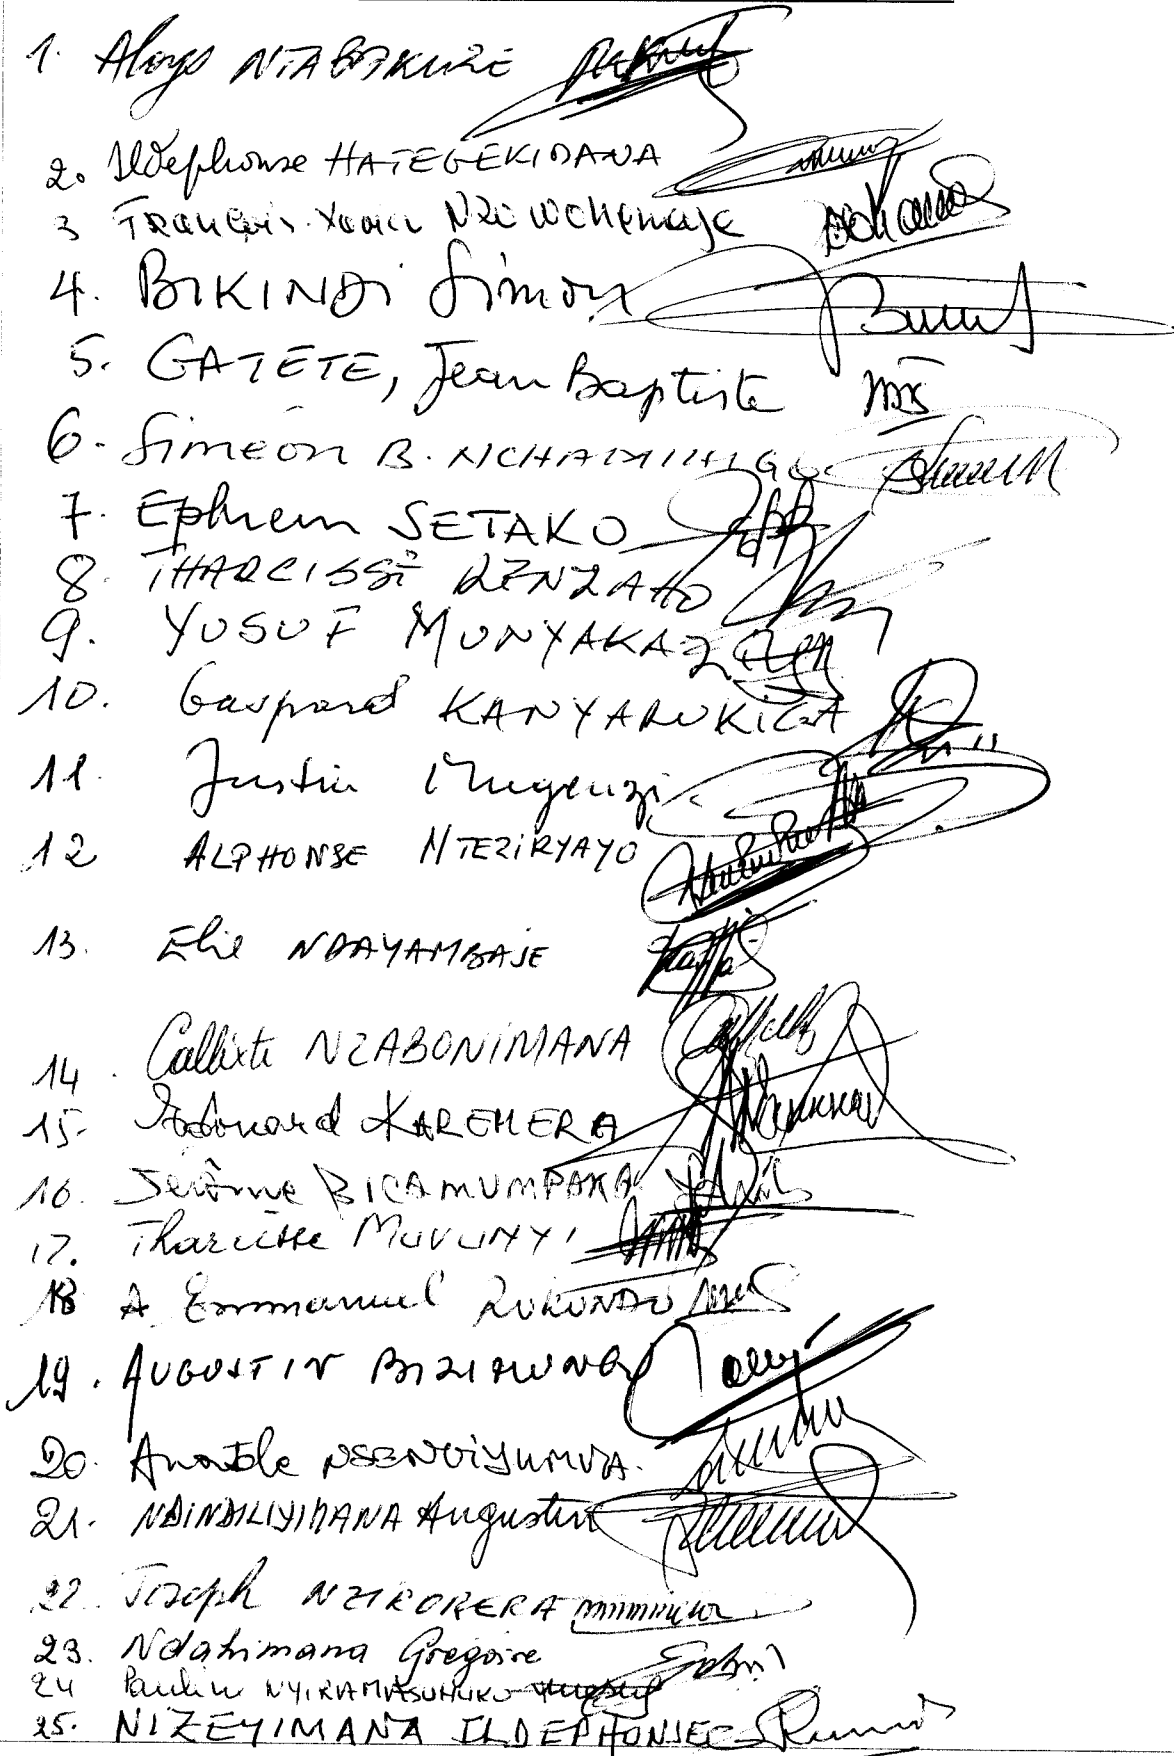 1. Aloys NTABAKUZE
2. Ildephonse HATEGEKIMANA
3 François-Xavier Nzuwonemeye
4. BIKINDI Simon
5. GATETE, Jean Baptiste
6. Siméon B. NCHAMIHIGO
7. Ephrem SETAKO
8. THARCISSE RENZAHO
9. YUSUF MUNYAKAZI
10. Gaspard KANYARUKIGA
11. Justin Mugenzi
12 ALPHONSE NTEZIRYAYO
13. Elie NDAYAMBAJE
14. Callixte NZABONIMANA
15. Edouard KAREMERA
16. Jérôme BICAMUMPAKA
17. Tharcisse MUVUNYI
18 A. Emmanuel RUKUNDO
19. AUGUSTIN BIZIMUNGU
20. Anatole NSENGIYUMVA.
21. NDINDILIYIMANA Augustin
22. Joseph NZIRORERA
23. Ndahimana Grégoire
24 Pauline NYIRAMASUHUKO
25. NIZEYIMANA ILDEPHONSE